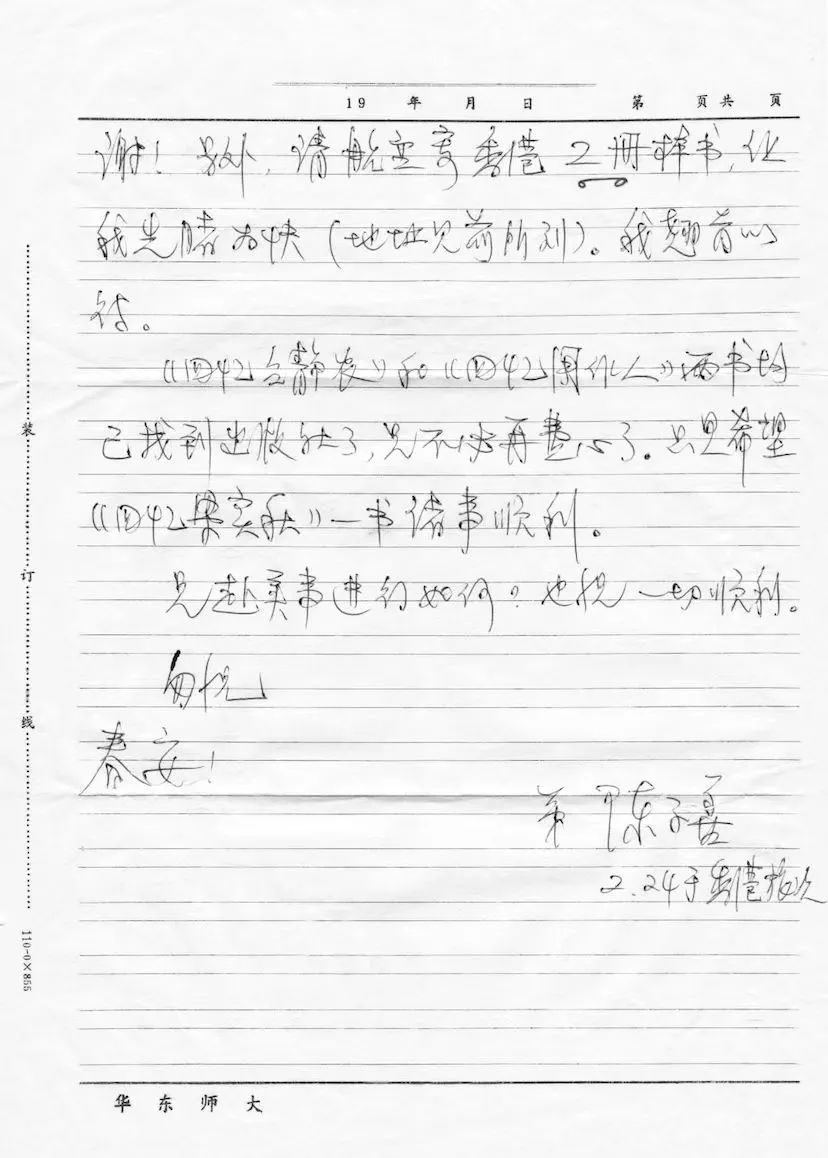 19 年 月 日 第 页共 页
谢！另外，请航空寄香港2册样书，让
我先睹为快（地址见前所列）。我翘首以
待。
《回忆台静农》和《回忆周作人》两书均
已找到出版社了，兄不必再费心了。只是希望
《回忆梁实秋》一书诸事顺利。
兄赴美事进行如何？也祝一切顺利。
匆祝
春安！
弟 陈子善
2.24于香港旅次
装
订
线
110-0×855
华东师大